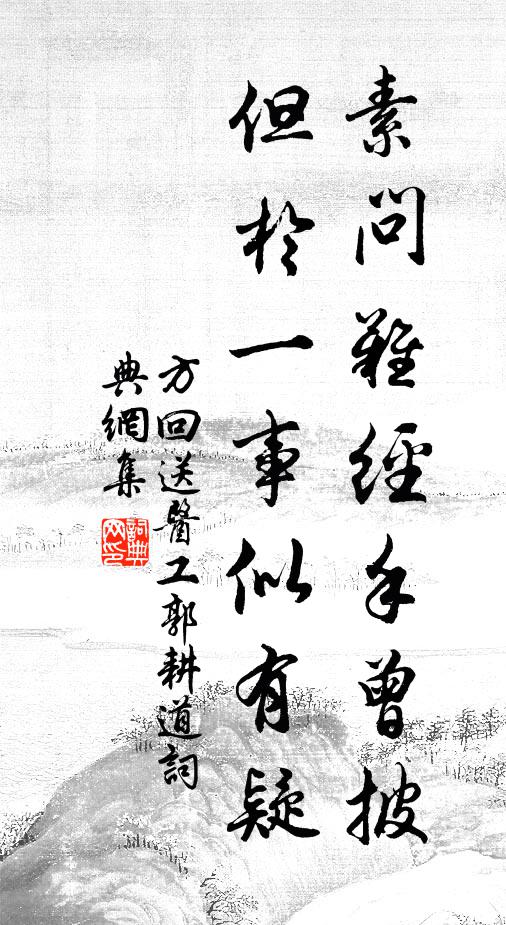 素問難經手曾披
但於一事似有疑
方回送醫工郭耕道詞
典網集
詞典
网印